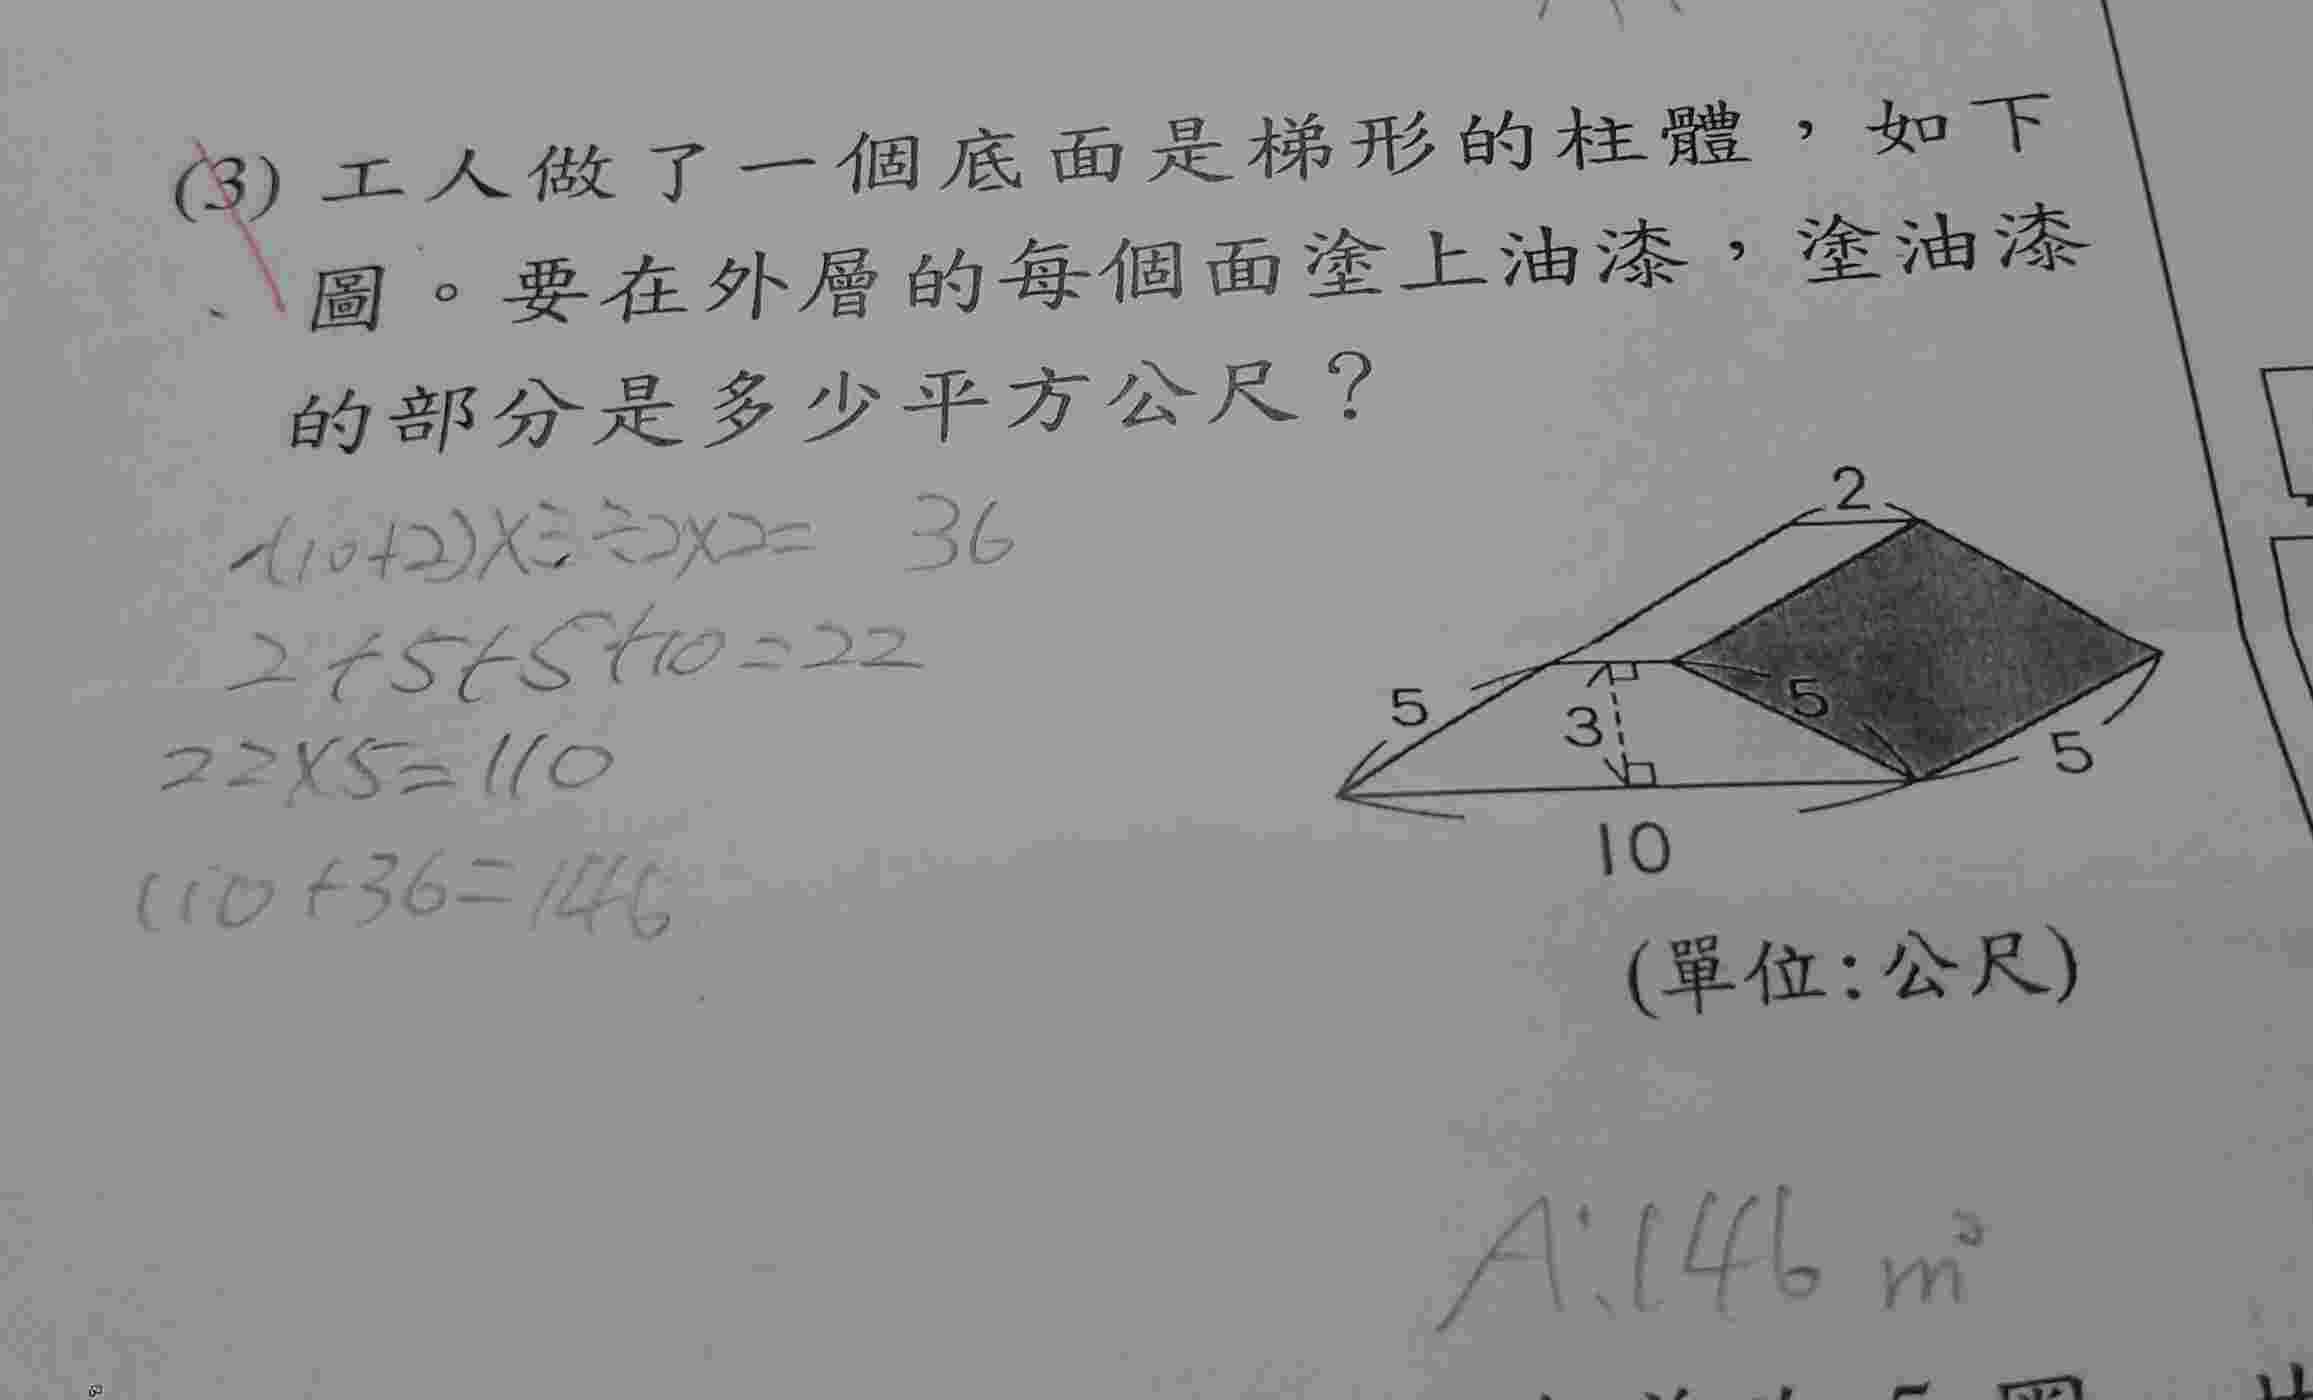 (3) 工人做了一個底面是梯形的柱體，如下
圖。要在外層的每個面塗上油漆，塗油漆
的部分是多少平方公尺？
(10+2)×3÷2×2= 36
2+5+5+10=22
22×5=110
110+36=146
2
5
3
5
5
10
(單位:公尺)
A:146 m²